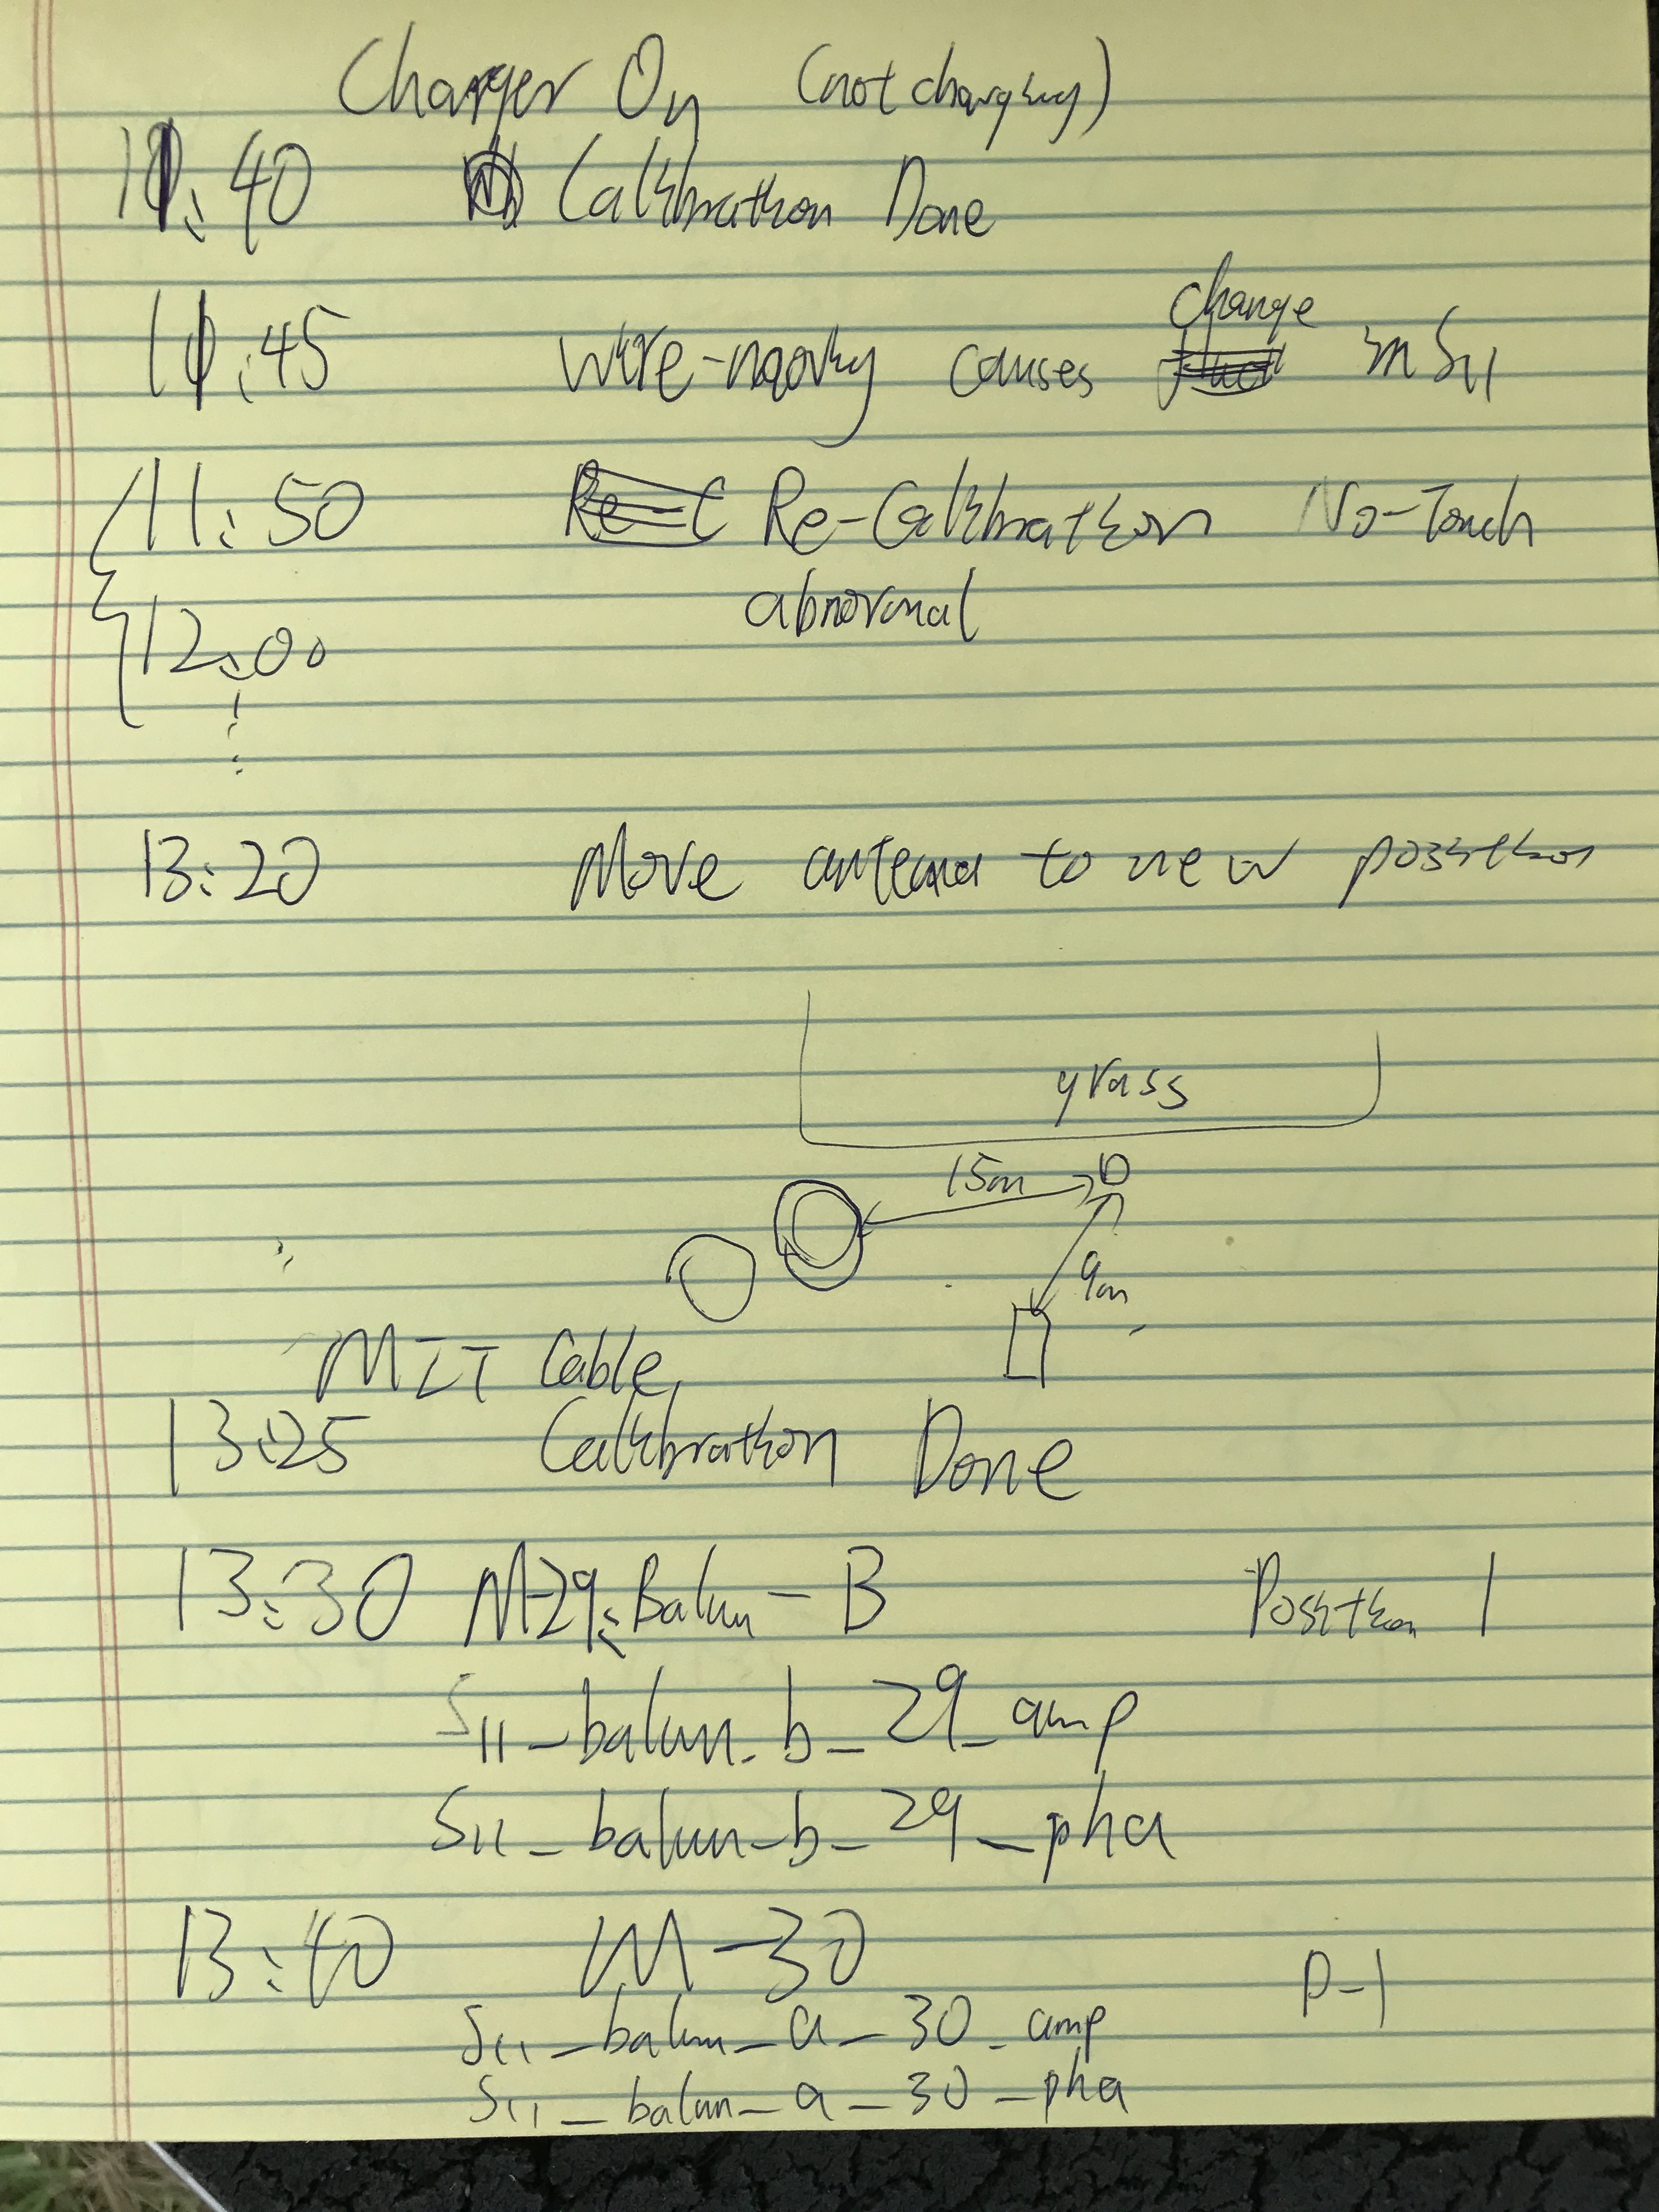 Charger On (not charging)
11:40 Calibration Done
11:45 wire-moving causes change in S11
11:50 Re-Calibration No-Touch
abnormal
12:00
13:20 Move antenna to new position
grass
15m
9m
MIT Cable
13:25 Calibration Done
13:30 M-29: Balun-B Position 1
S11_balun_b_29_amp
S11_balun_b_29_pha
13:40 M-30 P-1
S11_balun_a_30_amp
S11_balun_a_30_pha